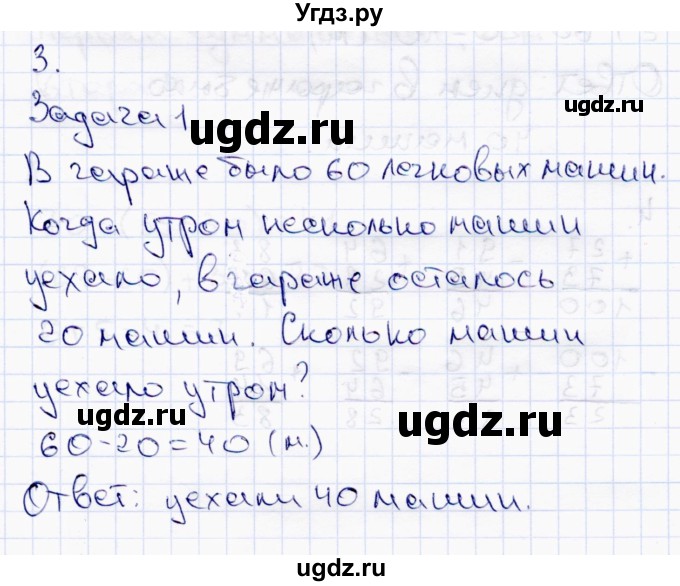 Угдз.ру
3.
Задача 1
ugdz.ru
ugdz.ru
В гараже было 60 легковых машин.
Когда утром несколько машин
ugdz.ru
уехало, в гараже осталось
20 машин. Сколько машин
ugdz.ru
уехало утром?
ugdz.ru
60-20=40 (м.)
ugdz.ru
Ответ: уехали 40 машин.
ugdz.ru